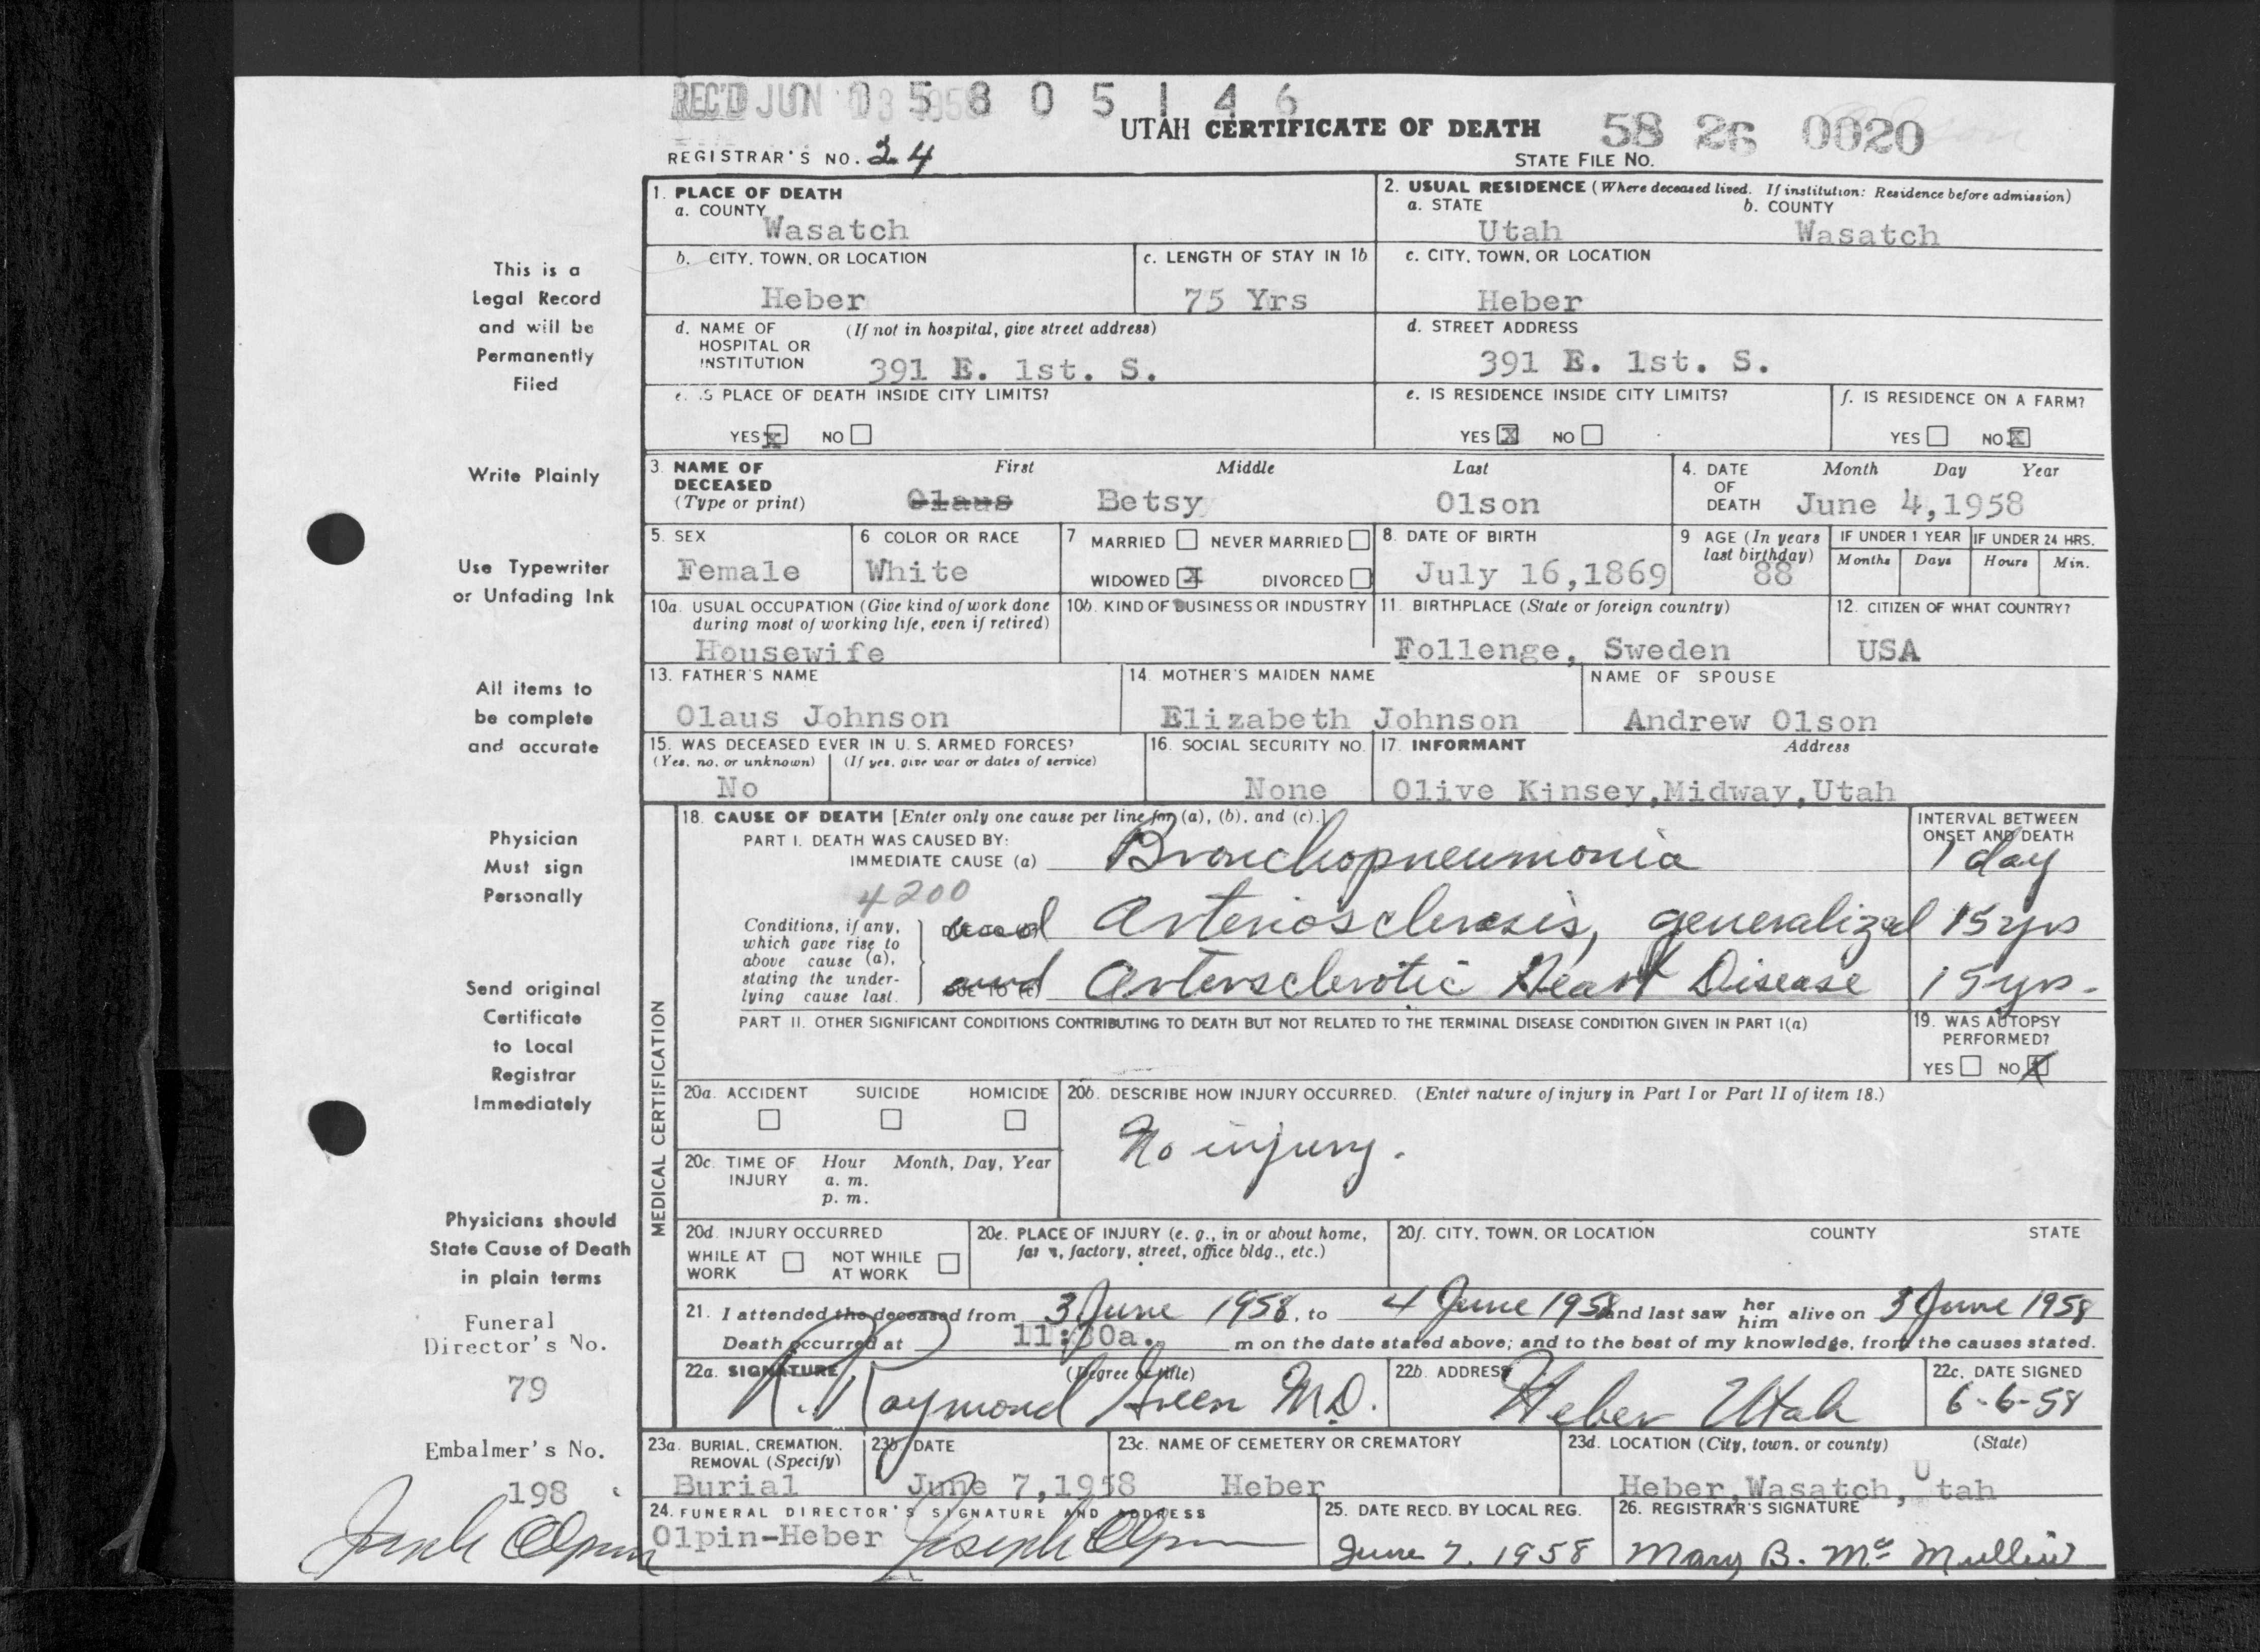 REC'D JUN 5 8 0 5 1 4 6
UTAH CERTIFICATE OF DEATH 58 26 0020
REGISTRAR'S NO. 24
STATE FILE NO.
1. PLACE OF DEATH
a. COUNTY
Wasatch
2. USUAL RESIDENCE (Where deceased lived. If institution: Residence before admission)
a. STATE b. COUNTY
Utah Wasatch
b. CITY, TOWN, OR LOCATION
Heber
c. LENGTH OF STAY IN 1b
75 Yrs
c. CITY, TOWN, OR LOCATION
Heber
d. NAME OF HOSPITAL OR INSTITUTION (If not in hospital, give street address)
391 E. 1st. S.
d. STREET ADDRESS
391 E. 1st. S.
e. IS PLACE OF DEATH INSIDE CITY LIMITS?
YES X NO
e. IS RESIDENCE INSIDE CITY LIMITS?
YES X NO
f. IS RESIDENCE ON A FARM?
YES NO X
3. NAME OF DECEASED (Type or print) First Middle Last
Olaus Betsy Olson
4. DATE OF DEATH Month Day Year
June 4,1958
5. SEX
Female
6 COLOR OR RACE
White
7 MARRIED NEVER MARRIED
WIDOWED X DIVORCED
8. DATE OF BIRTH
July 16,1869
9 AGE (In years last birthday)
88
IF UNDER 1 YEAR
Months Days
IF UNDER 24 HRS.
Hours Min.
10a. USUAL OCCUPATION (Give kind of work done during most of working life, even if retired)
Housewife
10b. KIND OF BUSINESS OR INDUSTRY
11. BIRTHPLACE (State or foreign country)
Follenge, Sweden
12. CITIZEN OF WHAT COUNTRY?
USA
13. FATHER'S NAME
Olaus Johnson
14. MOTHER'S MAIDEN NAME
Elizabeth Johnson
NAME OF SPOUSE
Andrew Olson
15. WAS DECEASED EVER IN U. S. ARMED FORCES?
(Yes, no, or unknown) (If yes, give war or dates of service)
No
16. SOCIAL SECURITY NO.
None
17. INFORMANT Address
Olive Kinsey,Midway,Utah
MEDICAL CERTIFICATION
18. CAUSE OF DEATH [Enter only one cause per line for (a), (b), and (c).]
PART I. DEATH WAS CAUSED BY:
IMMEDIATE CAUSE (a) Bronchopneumonia
INTERVAL BETWEEN ONSET AND DEATH
1 day
4200
Conditions, if any, which gave rise to above cause (a), stating the underlying cause last.
and Arteriosclerosis, generalized 15 yrs
DUE TO (c) and Artersclerotic Heart Disease 15 yrs.
PART II. OTHER SIGNIFICANT CONDITIONS CONTRIBUTING TO DEATH BUT NOT RELATED TO THE TERMINAL DISEASE CONDITION GIVEN IN PART I(a)
19. WAS AUTOPSY PERFORMED?
YES NO X
20a. ACCIDENT SUICIDE HOMICIDE
20b. DESCRIBE HOW INJURY OCCURRED. (Enter nature of injury in Part I or Part II of item 18.)
No injury.
20c. TIME OF INJURY Hour Month, Day, Year
a. m.
p. m.
20d. INJURY OCCURRED
WHILE AT WORK NOT WHILE AT WORK
20e. PLACE OF INJURY (e. g., in or about home, factory, street, office bldg., etc.)
20f. CITY, TOWN, OR LOCATION COUNTY STATE
21. I attended the deceased from 3 June 1958, to 4 June 1958 and last saw her him alive on 3 June 1958
Death occurred at 11:30a. m on the date stated above; and to the best of my knowledge, from the causes stated.
22a. SIGNATURE (Degree or title)
R. Raymond Green M.D.
22b. ADDRESS
Heber Utah
22c. DATE SIGNED
6-6-58
23a. BURIAL, CREMATION, REMOVAL (Specify)
Burial
23b. DATE
June 7,1958
23c. NAME OF CEMETERY OR CREMATORY
Heber
23d. LOCATION (City, town, or county) (State)
Heber,Wasatch, Utah
24. FUNERAL DIRECTOR'S SIGNATURE AND ADDRESS
Olpin-Heber Joseph Olpin
25. DATE RECD. BY LOCAL REG.
June 7, 1958
26. REGISTRAR'S SIGNATURE
Mary B. Mc Mullin
This is a
Legal Record
and will be
Permanently
Filed
Write Plainly
Use Typewriter
or Unfading Ink
All items to
be complete
and accurate
Physician
Must sign
Personally
Send original
Certificate
to Local
Registrar
Immediately
Physicians should
State Cause of Death
in plain terms
Funeral
Director's No.
79
Embalmer's No.
198
Joseph Olpin